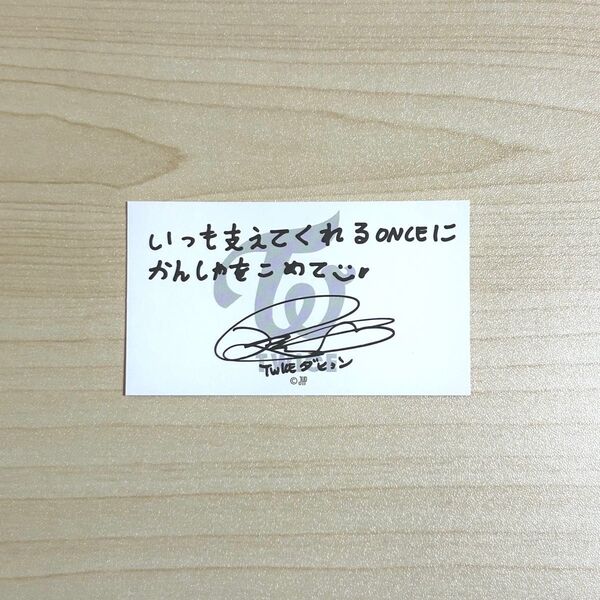 いつも支えてくれるONCEに
かんしゃをこめて
TWICEダヒョン
TWICE
©JYP